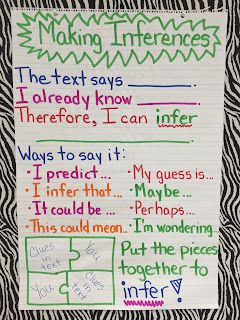 Making Inferences
The text says ________.
I already know ________.
Therefore, I can infer
________________.
Ways to say it:
• I predict... • My guess is...
• I infer that... • Maybe...
• It could be... • Perhaps...
• This could mean... • I'm wondering...
Clues in text You
You Clues in text
Put the pieces
together to
infer!